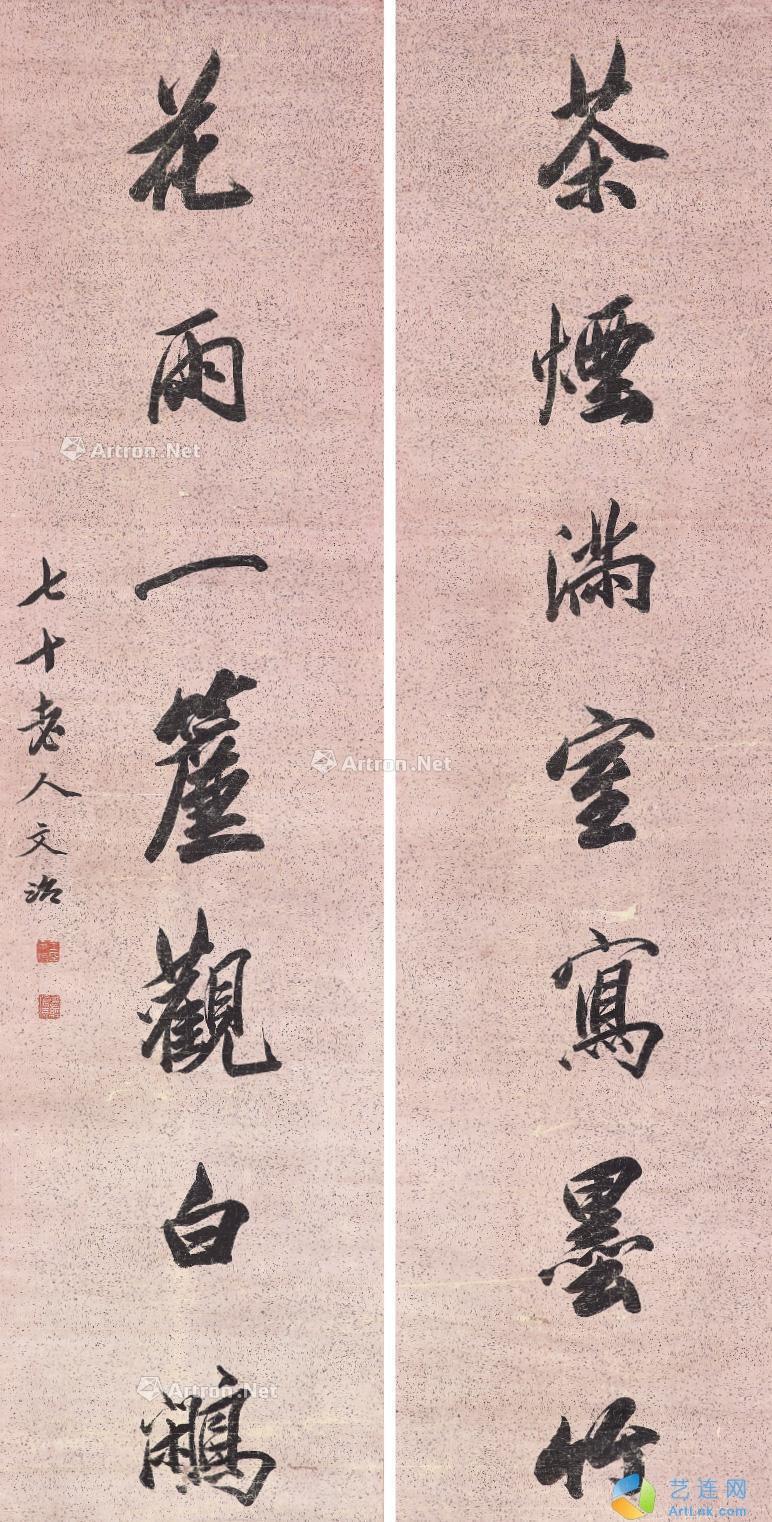 茶煙滿室寫墨竹
花雨一簾觀白鷴
七十老人文治
Artron.Net
Artron.Net
Artron.Net
艺连网
ArtLnk.com